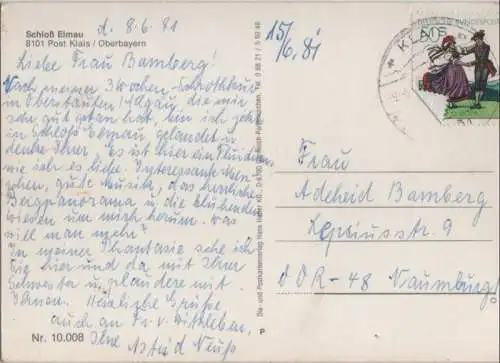 Schloß Elmau
8101 Post Klais / Oberbayern
d. 8.6.81
15/6.81
Liebe Frau Bamberg!
Nach meiner 3 Wochen-Schrothkur
in Oberstaufen Allgäu, die mir
sehr gut getan hat, bin ich jetzt
in Schloß Elmau gelandet u.
denke Ihrer. Es ist hier ein Fluidum
wie sehr es liebe. Interessante Men-
schen, gute Musik, das herrliche
Bergpanorama u. die blühenden
Wiesen um mich herum. Was
will man mehr?
In meiner Phantasie sehe ich
Sie hier und da mit Ihrer
Schwester u. plaudere mit
Ihnen. Herzliche Grüße
auch an Fr. v. Wittleben,
Ihre Astrid Neuß
Nr. 10.008
Die- und Postkartenverlag Hans Huber KG, D-8100 Garmisch-Partenkirchen, Tel. 0 88 21 / 5 92 46
P
KLAIS
DEUTSCHE BUNDESPOST
Frau
Adelheid Bamberg
Lepsiusstr. 9
DDR-48 Naumburg